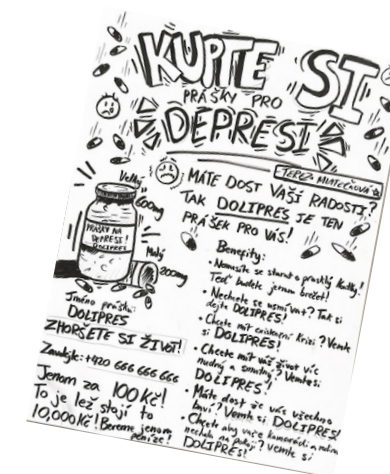 KUPTE SI
PRÁŠKY PRO
DEPRESI
TEREZ
MÁTE DOST VAŠÍ RADOSTI?
TAK DOLIPRES JE TEN
PRÁŠEK PRO VÁS!
Velký
600mg
PRÁŠKY NA
DEPRESI!
DOLIPRES
Malý
200mg
Jméno prášku:
DOLIPRES
ZHORŠETE SI ŽIVOT!
Zavolejte: +420 666 666 666
Jenom za 100Kč!
To je lež stojí to
10,000Kč! Bereme jenom
peníze!
Benefity:
• Nemusíte se starat o
Teď budete jenom brečet!
• Nechcete se usmívat? Tak si
dejte DOLIPRES!
• Chcete mít existenční krizi? Vemte
si DOLIPRES!
• Chcete mít váš život víc
nudný a smutný? Vemte si
DOLIPRES!
• Máte dost že vás všechno
baví? Vemte si DOLIPRES!
• Chcete aby vaše kamarádi a rodina
nechali na pokoji? vemte si
DOLIPRES!